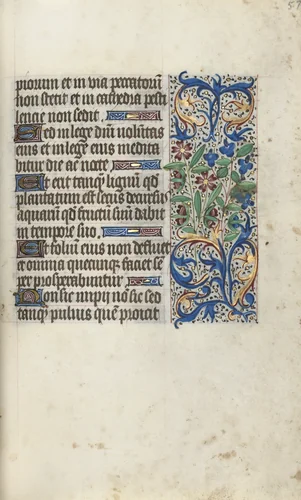 57
piorum et in via peccatorū
non stetit et in cathedra pesti
lencie non sedit.
Sed in lege dn̄i volūtas
eius et in lege eius medita
bitur die ac nocte.
Et erit tanq̄ lignum qd̄
plantatum est secus decursus
aquarū qd̄ fructū suū dabit
in tempore suo.
Et foliū eius non defluet
et omnia quecunq̄ faciet sē
per prosperabuntur.
Non sic impii nō sic sed
tanq̄ puluis quē proicit